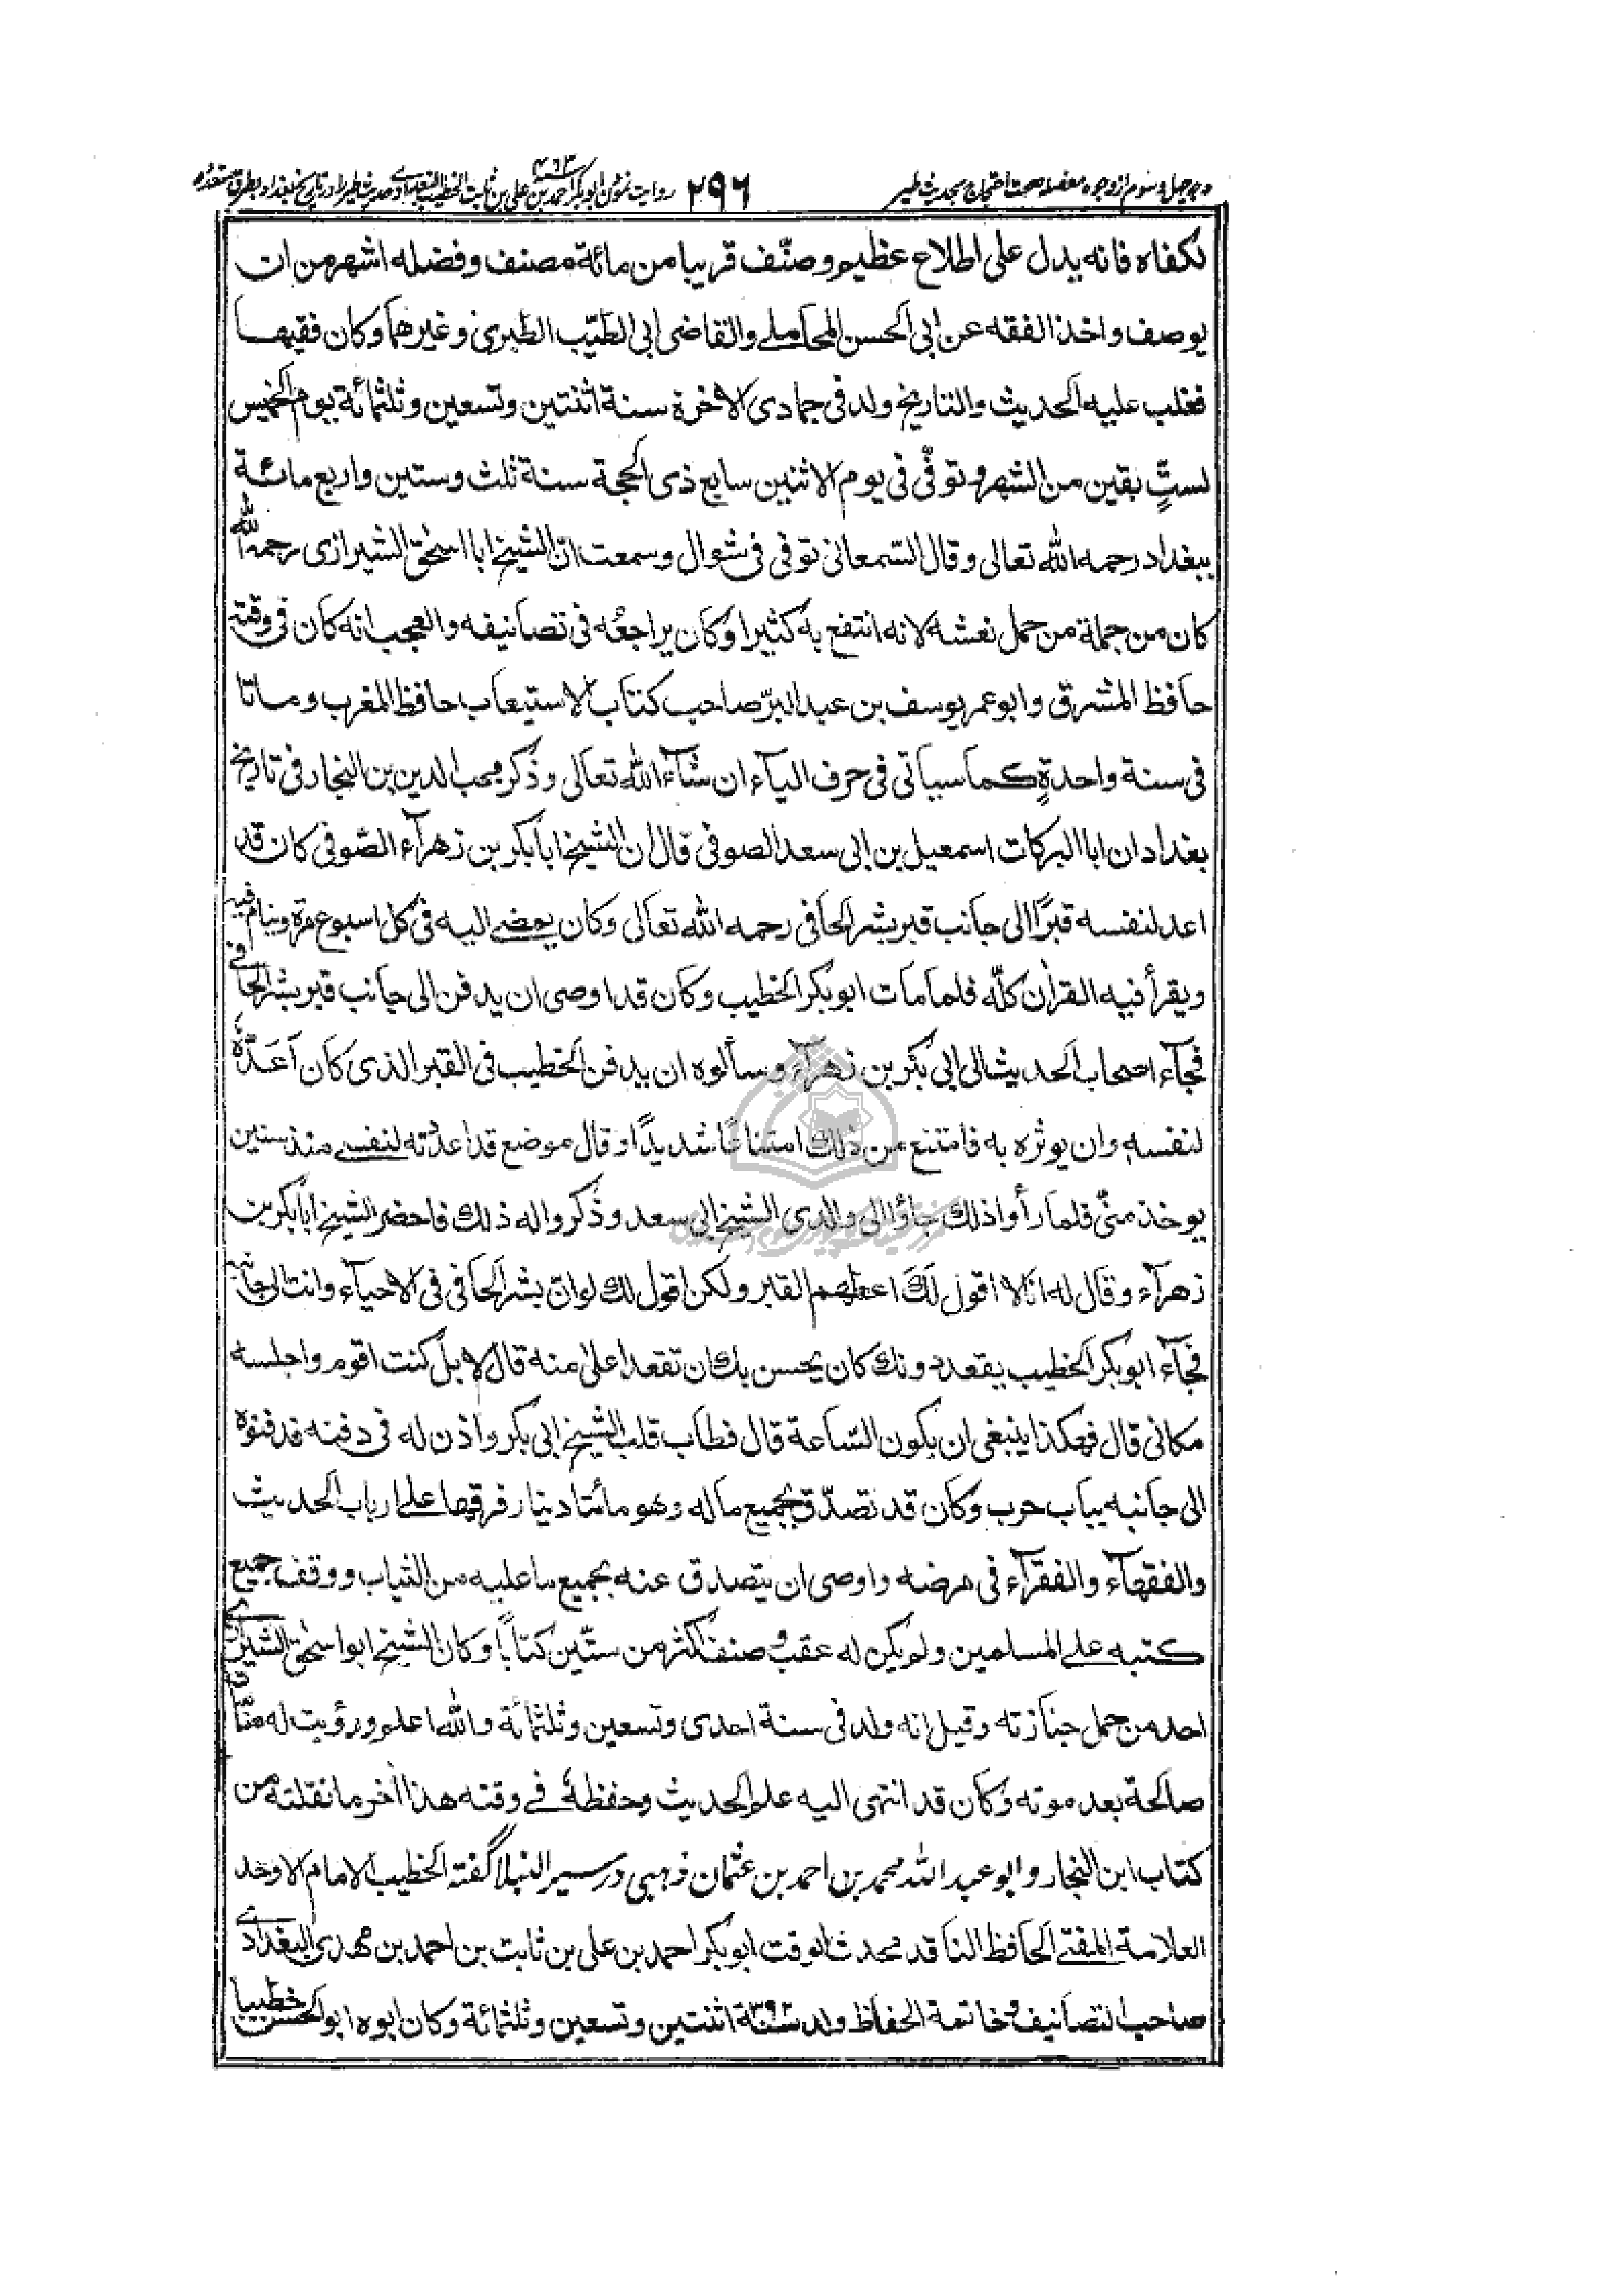 وجه چهل و سوم از وجوه مفصله صحت احتجاج بحدیث طیر ۲۹۶ روایت نمودن ابوبکر احمد بن علی بن ثابت الخطیب البغدادی حدیث طیر را در تاریخ بغداد بطرق متعدده
۴۶۳
لكفاه فانه يدل على اطلاع عظيم وصنّف قريبا من مائة مصنف وفضله اشهر من ان
يوصف واخذ الفقه عن ابى الحسن المحاملے والقاضى ابى الطيّب الطبرى وغيرهما وكان فقيها
فغلب عليه الحديث والتاريخ ولد فى جمادى الاخرة سنة اثنتين وتسعين وثلثمائة يوم الخميس
لستٍّ بقين من الشهر وتوفّى فى يوم الاثنين سابع ذى الحجة سنة ثلث وستين واربع مائة
ببغداد رحمه الله تعالى وقال السّمعانى توفى فى شوال وسمعت انّ الشيخ ابا اسحٰق الشيرازى رحمه الله
كان من جملة من حمل نعشه لانه انتفع به كثيرا وكان يراجعُه فى تصانيفه والعجب انه كان فى وقته
حافظ المشرق وابو عمر يوسف بن عبد البرّ صاحب كتاب الاستيعاب حافظ المغرب وماتا
فى سنة واحدةٍ كما سياتى فى حرف الياء ان شآء الله تعالى وذكر محب الدين بن النجار فى تاريخ
بغداد ان ابا البركات اسمعيل بن ابى سعد الصوفى قال ان الشيخ ابا بكر بن زهرآء الصّوفى كان قد
اعد لنفسه قبرًا الى جانب قبر بشر الحافى رحمه الله تعالى وكان يمضے اليه فى كل اسبوع مرة وينام فيه
ويقرأ فيه القرأن كلّه فلما مات ابو بكر الخطيب وكان قد اوصى ان يدفن الى جانب قبر بشر الحافى
فجآء اصحاب الحديث الى ابى بكر بن زهرآء وسألوه ان يدفن الخطيب فى القبر الذى كان اَعَدَّه
لنفسه وان يوثره به فامتنع من ذلك امتناعًا شديدًا وقال موضع قد اعددته لنفسے منذ سنين
يوخذ منّى فلما رأوا ذلك جاؤا الى والدى الشيخ ابى سعد وذكروا له ذلك فاحضر الشيخ ابا بكر بن
زهرآء وقال له انا لا اقول لك اعطهم القبر ولكن اقول لك لو انّ بشر الحافى فى الاحياء وانت الى جانبه
فجآء ابو بكر الخطيب يقعد دونك كان يحسن بك ان تقعد اعلىٰ منه قال لا بل كنت اقوم واجلسه
مكانى قال فهكذا ينبغى ان يكون السّاعة قال فطاب قلب الشيخ ابى بكر واذن له فى دفنه فدفنوه
الى جانبه بباب حرب وكان قد تصدّق بجميع ماله وهو مائتا دينار فرقها على ارباب الحديث
والفقهآء والفقرآء فى مرضه واوصى ان يتصدق عنه بجميع ما عليه من الثياب ووقف جميع
كتبه علے المسلمين ولم يكن له عقب و صنف اكثر من ستّين كتابًا وكان الشيخ ابو اسحٰق الشيرازى
احد من حمل جنازته وقيل انه ولد فى سنة احدى وتسعين وثلثمائة والله اعلم ورؤيت له منامات
صالحة بعد موته وكان قد انتهى اليه علم الحديث وحفظهٗ فے وقته هذا اٰخر ما نقلته من
كتاب ابن النجار وابو عبد الله محمد بن احمد بن عثمان ذهبى در سير النبلا گفته الخطيب الامام الاوحد
العلامة المفتے الحافظ الناقد محدث الوقت ابو بكر احمد بن على بن ثابت بن احمد بن مهدى البغدادے
صاحب التصانيف و خاتمة الحفاظ ولد سنة ۳۹۲ اثنتين وتسعين وثلثمائة وكان ابوه ابو الحسن خطيبا